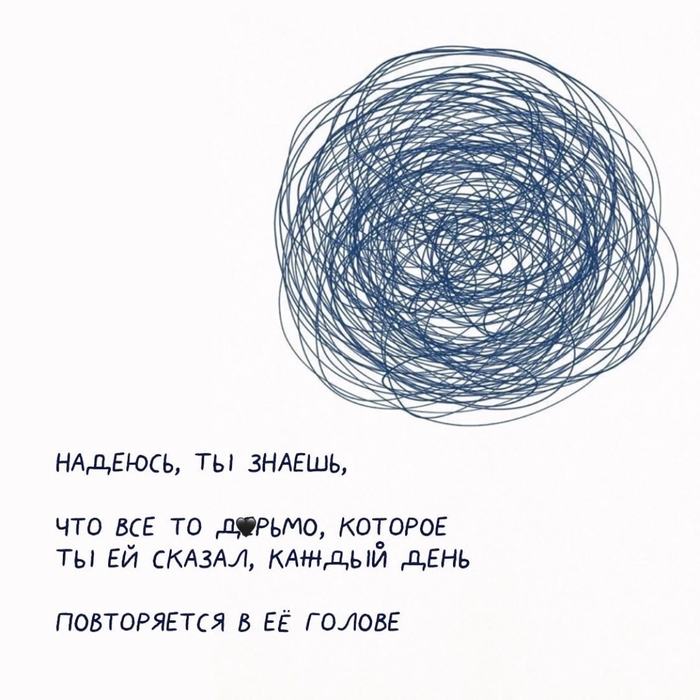 НАДЕЮСЬ, ТЫ ЗНАЕШЬ,
ЧТО ВСЕ ТО Д🖤РЬМО, КОТОРОЕ
ТЫ ЕЙ СКАЗАЛ, КАЖДЫЙ ДЕНЬ
ПОВТОРЯЕТСЯ В ЕЁ ГОЛОВЕ